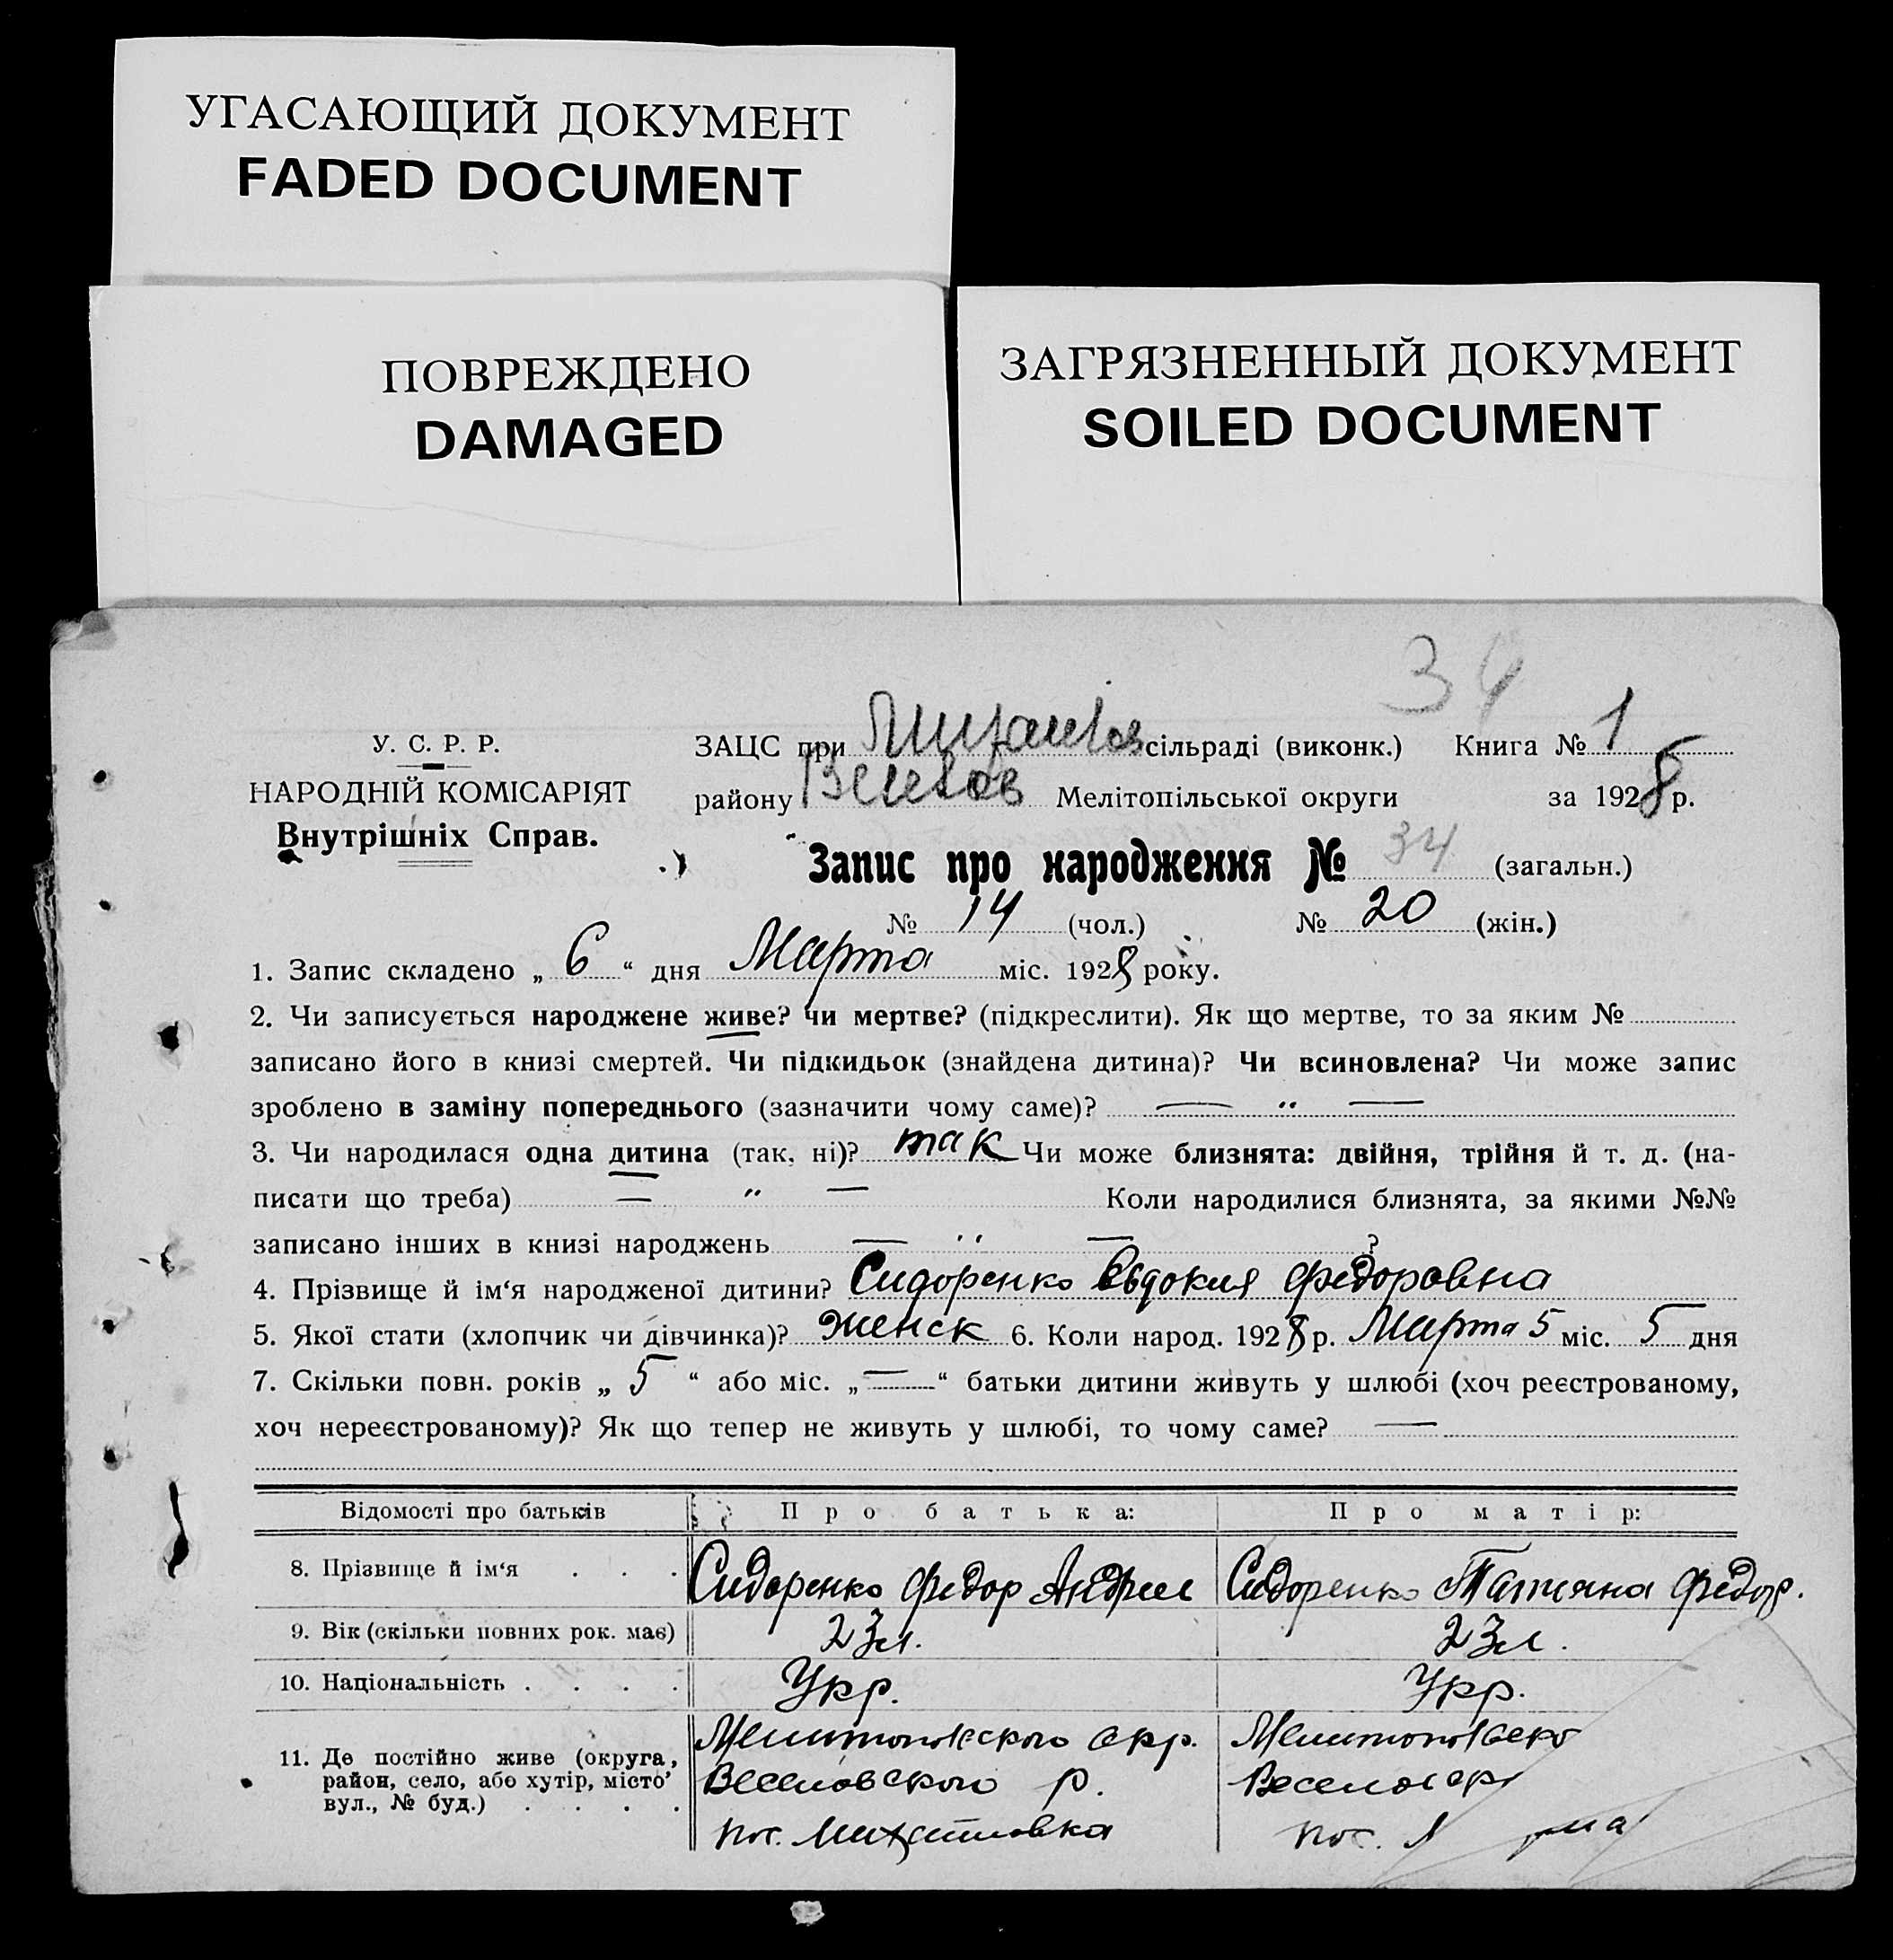 УГАСАЮЩИЙ ДОКУМЕНТ
FADED DOCUMENT
ПОВРЕЖДЕНО
DAMAGED
ЗАГРЯЗНЕННЫЙ ДОКУМЕНТ
SOILED DOCUMENT
34
У. С. Р. Р.
НАРОДНІЙ КОМІСАРІЯТ
Внутрішніх Справ.
ЗАЦС при сільраді (виконк.) Книга № 1
району Мелітопільської округи за 1928 р.
Запис про народження № 34 (загальн.)
№ 14 (чол.) № 20 (жін.)
1. Запис складено „ 6 “ дня Марта міс. 1928 року.
2. Чи записується народжене живе? чи мертве? (підкреслити). Як що мертве, то за яким №
записано його в книзі смертей. Чи підкидьок (знайдена дитина)? Чи всиновлена? Чи може запис
зроблено в заміну попереднього (зазначити чому саме)? — „ —
3. Чи народилася одна дитина (так, ні)? так Чи може близнята: двійня, трійня й т. д. (на-
писати що треба) — „ — Коли народилися близнята, за якими №№
записано інших в книзі народжень — „ — ?
4. Прізвище й ім‘я народженої дитини? Сидоренко Евдокия Федоровна
5. Якої стати (хлопчик чи дівчинка)? женск 6. Коли народ. 1928 р. Марта 5 міс. 5 дня
7. Скільки повн. років „ 5 “ або міс. „ — “ батьки дитини живуть у шлюбі (хоч реєстрованому,
хоч нереєстрованому)? Як що тепер не живуть у шлюбі, то чому саме? —
Відомості про батьків Про батька: Про матір:
8. Прізвище й ім‘я . . . Сидоренко Федор Андрее Сидоренко Татияна Федор.
9. Вік (скільки повних рок. має) 23 л. 23 л.
10. Національність . . . . Укр. Укр.
11. Де постійно живе (округа,
район, село, або хутір, місто,
вул., № буд.) . . . .
Мелитопольского окр.
Веселовского р.
пос. Михайловка